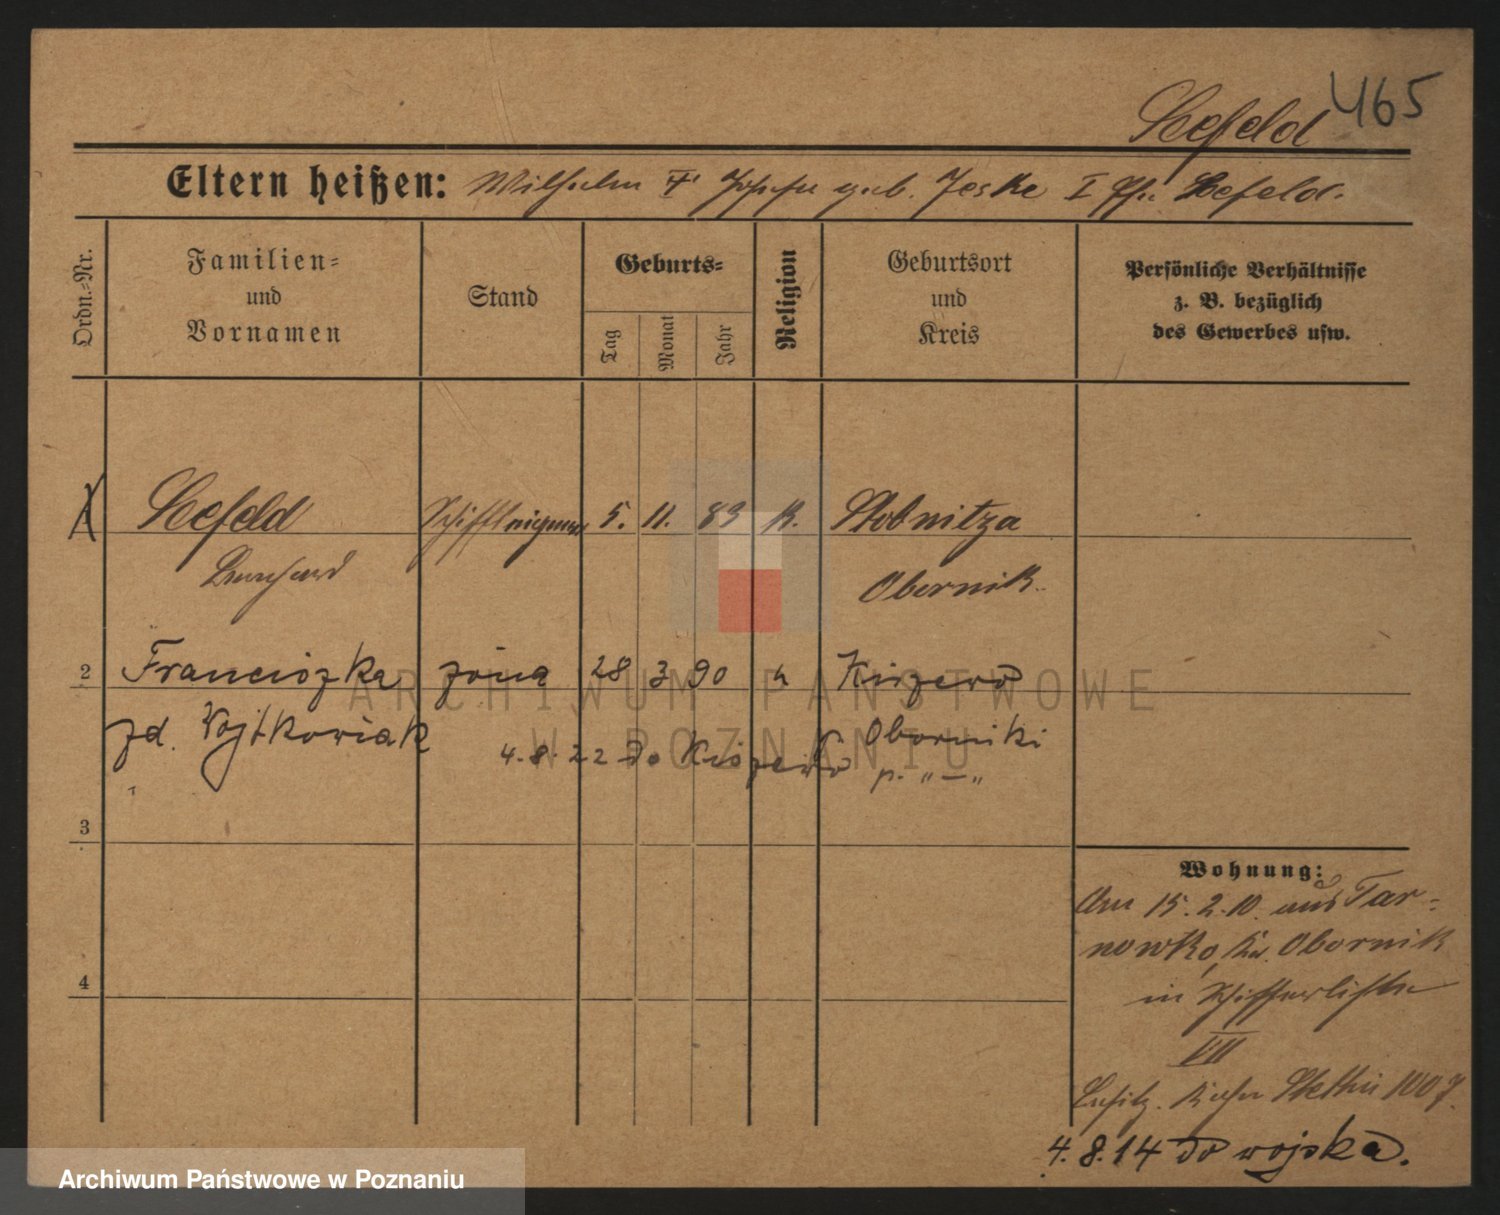 465
Seefeld
Eltern heißen: Wilhelm geb. Jeske I Seefeld.
Ordn.-Nr.
Familien-
und
Vornamen
Stand
Geburts-
Tag
Monat
Jahr
Religion
Geburtsort
und
Kreis
Persönliche Verhältnisse
z. B. bezüglich
des Gewerbes usw.
Seefeld 5. 11. 83 k. Stobnitza
Bernhard Obornik.
2 Franciszka żona 28 3 90 k Kiszewo
zd. Wojtkowiak Oborniki
4.8.22 do Kiszewo p. „—„
3
4
Wohnung:
Am 15.2.10. aus Tar-
nowko, Kr. Obornik
in Schifferliste
VII
Stettin 1007
4.8.14 do wojska.
ARCHIWUM PAŃSTWOWE
W POZNANIU
Archiwum Państwowe w Poznaniu